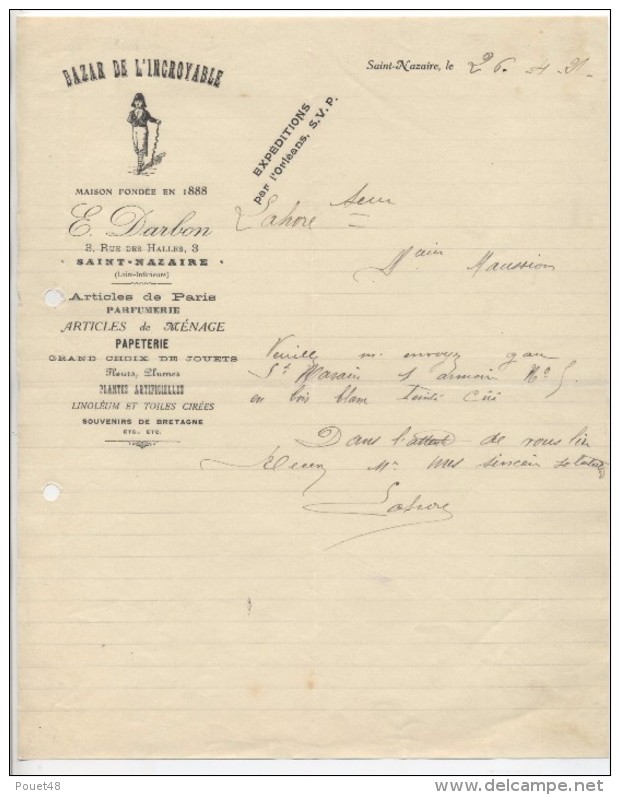 BAZAR DE L'INCROYABLE
MAISON FONDÉE EN 1888
E. Darbon
3, RUE DES HALLES, 3
SAINT-NAZAIRE
(Loire-Inférieure)
Articles de Paris
PARFUMERIE
ARTICLES de MÉNAGE
PAPETERIE
GRAND CHOIX DE JOUETS
Fleurs, Plumes
PLANTES ARTIFICIELLES
LINOLÉUM ET TOILES CIRÉES
SOUVENIRS DE BRETAGNE
ETC. ETC.
EXPÉDITIONS
par l'Orléans, S.V.P.
Saint-Nazaire, le 26. 4. 31
Lahore
Maussion
Veuille m. envoyez gare
St Nazain 1 armoir No 5
en bois blanc teinté ciré
Dans l'attent de vous lir
Mr mes sincèr
Lahore
Pouet48
www.delcampe.net